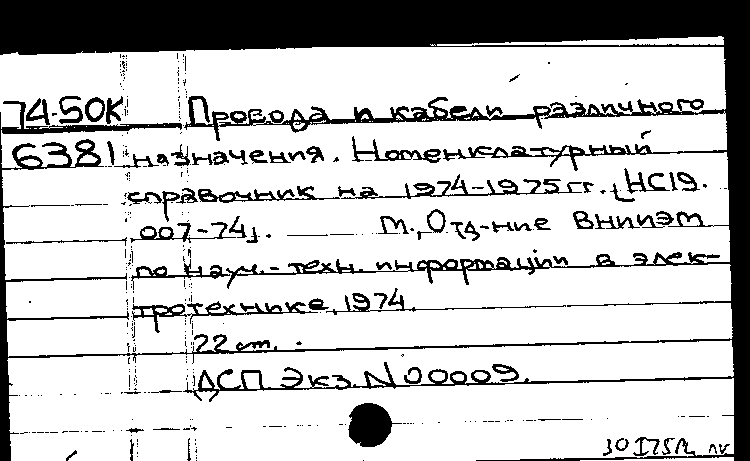 74-50К Провода и кабели различного
6381 назначения. Номенклатурный
справочник на 1974-1975 гг. [НС19.
007-74]. М., Отд-ние ВНИИЭМ
по науч.-техн. информации в элек-
тротехнике, 1974.
22 ст.
ДСП Экз. N 00009.
30 I 75